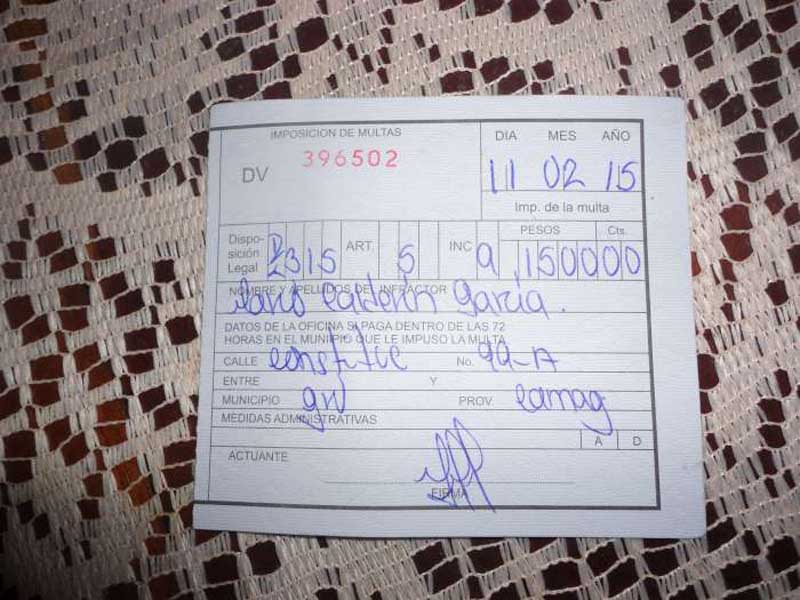 IMPOSICION DE MULTAS
DV 396502
DIA MES AÑO
11 02 15
Imp. de la multa
PESOS Cts.
Dispo-
sición
Legal 315 ART. 5 INC a 150000
NOMBRE Y APELLIDOS DEL INFRACTOR
Calderin Garcia.
DATOS DE LA OFICINA SI PAGA DENTRO DE LAS 72
HORAS EN EL MUNIIPIO QUE LE IMPUSO LA MULTA
CALLE No. 99-A
ENTRE Y
MUNICIPIO PROV. Camag
MEDIDAS ADMINISTRATIVAS
A D
ACTUANTE
FIRMA